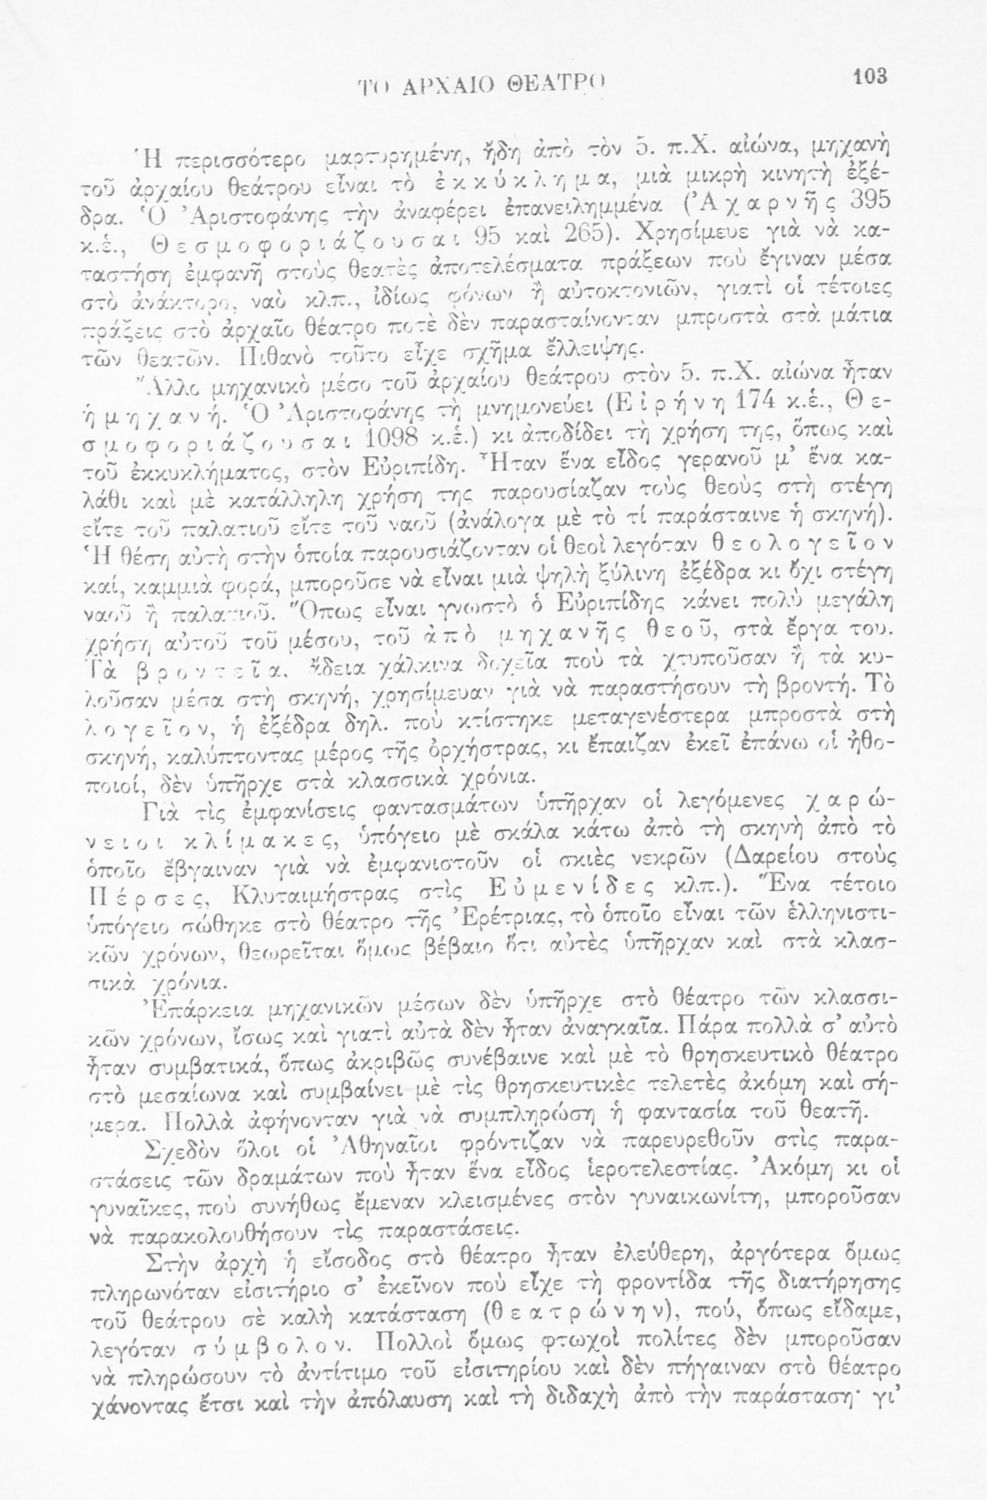 ΤΟ ΑΡΧΑΙΟ ΘΕΑΤΡΟ 103
Ἡ περισσότερο μαρτυρημένη, ἤδη ἀπὸ τὸν 5. π.Χ. αἰώνα, μηχανὴ
τοῦ ἀρχαίου θεάτρου εἶναι τὸ ἐκκύκλημα, μιὰ μικρὴ κινητὴ ἐξέ-
δρα. Ὁ Ἀριστοφάνης τὴν ἀναφέρει ἐπανειλημμένα (Ἀχαρνῆς 395
κ.ἑ., Θεσμοφοριάζουσαι 95 καὶ 265). Χρησίμευε γιὰ νὰ κα-
ταστήση ἐμφανῆ στοὺς θεατὲς ἀποτελέσματα πράξεων ποὺ ἔγιναν μέσα
στὸ ἀνάκτορο, ναὸ κλπ., ἰδίως φόνων ἢ αὐτοκτονιῶν, γιατὶ οἱ τέτοιες
πράξεις στὸ ἀρχαῖο θέατρο ποτὲ δὲν παρασταίνονταν μπροστὰ στὰ μάτια
τῶν θεατῶν. Πιθανὸ τοῦτο εἶχε σχῆμα ἔλλειψης.
Ἄλλο μηχανικὸ μέσο τοῦ ἀρχαίου θεάτρου στὸν 5. π.Χ. αἰώνα ἦταν
ἡ μηχανή. Ὁ Ἀριστοφάνης τὴ μνημονεύει (Εἰρήνη 174 κ.ἑ., Θε-
σμοφοριάζουσαι 1098 κ.ἑ.) κι ἀποδίδει τὴ χρήση της, ὅπως καὶ
τοῦ ἐκκυκλήματος, στὸν Εὐριπίδη. Ἦταν ἕνα εἶδος γερανοῦ μ’ ἕνα κα-
λάθι καὶ μὲ κατάλληλη χρήση της παρουσίαζαν τοὺς θεοὺς στὴ στέγη
εἴτε τοῦ παλατιοῦ εἴτε τοῦ ναοῦ (ἀνάλογα μὲ τὸ τί παράσταινε ἡ σκηνή).
Ἡ θέση αὐτὴ στὴν ὁποία παρουσιάζονταν οἱ θεοὶ λεγόταν θεολογεῖον
καί, καμμιὰ φορά, μποροῦσε νὰ εἶναι μιὰ ψηλὴ ξύλινη ἐξέδρα κι ὄχι στέγη
ναοῦ ἢ παλατιοῦ. Ὅπως εἶναι γνωστὸ ὁ Εὐριπίδης κάνει πολὺ μεγάλη
χρήση αὐτοῦ τοῦ μέσου, τοῦ ἀπὸ μηχανῆς θεοῦ, στὰ ἔργα του.
Τὰ βροντεῖα, ἄδεια χάλκινα δοχεῖα ποὺ τὰ χτυποῦσαν ἢ τὰ κυ-
λοῦσαν μέσα στὴ σκηνή, χρησίμευαν γιὰ νὰ παραστήσουν τὴ βροντή. Τὸ
λογεῖον, ἡ ἐξέδρα δηλ. ποὺ κτίστηκε μεταγενέστερα μπροστὰ στὴ
σκηνή, καλύπτοντας μέρος τῆς ὀρχήστρας, κι ἔπαιζαν ἐκεῖ ἐπάνω οἱ ἠθο-
ποιοί, δὲν ὑπῆρχε στὰ κλασσικὰ χρόνια.
Γιὰ τὶς ἐμφανίσεις φαντασμάτων ὑπῆρχαν οἱ λεγόμενες χαρώ-
νειοι κλίμακες, ὑπόγειο μὲ σκάλα κάτω ἀπὸ τὴ σκηνὴ ἀπὸ τὸ
ὁποῖο ἔβγαιναν γιὰ νὰ ἐμφανιστοῦν οἱ σκιὲς νεκρῶν (Δαρείου στοὺς
Πέρσες, Κλυταιμήστρας στὶς Εὐμενίδες κλπ.). Ἕνα τέτοιο
ὑπόγειο σώθηκε στὸ θέατρο τῆς Ἐρέτριας, τὸ ὁποῖο εἶναι τῶν ἑλληνιστι-
κῶν χρόνων, θεωρεῖται ὅμως βέβαιο ὅτι αὐτὲς ὑπῆρχαν καὶ στὰ κλασ-
σικὰ χρόνια.
Ἐπάρκεια μηχανικῶν μέσων δὲν ὑπῆρχε στὸ θέατρο τῶν κλασσι-
κῶν χρόνων, ἴσως καὶ γιατὶ αὐτὰ δὲν ἦταν ἀναγκαῖα. Πάρα πολλὰ σ’ αὐτὸ
ἦταν συμβατικά, ὅπως ἀκριβῶς συνέβαινε καὶ μὲ τὸ θρησκευτικὸ θέατρο
στὸ μεσαίωνα καὶ συμβαίνει μὲ τὶς θρησκευτικὲς τελετὲς ἀκόμη καὶ σή-
μερα. Πολλὰ ἀφήνονταν γιὰ νὰ συμπληρώση ἡ φαντασία τοῦ θεατῆ.
Σχεδὸν ὅλοι οἱ Ἀθηναῖοι φρόντιζαν νὰ παρευρεθοῦν στὶς παρα-
στάσεις τῶν δραμάτων ποὺ ἦταν ἕνα εἶδος ἱεροτελεστίας. Ἀκόμη κι οἱ
γυναῖκες, ποὺ συνήθως ἔμεναν κλεισμένες στὸν γυναικωνίτη, μποροῦσαν
νὰ παρακολουθήσουν τὶς παραστάσεις.
Στὴν ἀρχὴ ἡ εἴσοδος στὸ θέατρο ἦταν ἐλεύθερη, ἀργότερα ὅμως
πληρωνόταν εἰσιτήριο σ’ ἐκεῖνον ποὺ εἶχε τὴ φροντίδα τῆς διατήρησης
τοῦ θεάτρου σὲ καλὴ κατάσταση (θεατρώνην), πού, ὅπως εἴδαμε,
λεγόταν σύμβολον. Πολλοὶ ὅμως φτωχοὶ πολίτες δὲν μποροῦσαν
νὰ πληρώσουν τὸ ἀντίτιμο τοῦ εἰσιτηρίου καὶ δὲν πήγαιναν στὸ θέατρο
χάνοντας ἔτσι καὶ τὴν ἀπόλαυση καὶ τὴ διδαχὴ ἀπὸ τὴν παράσταση· γι’